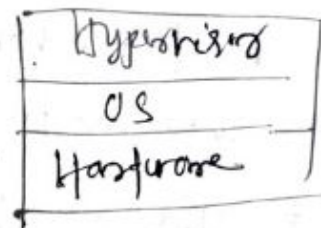 Hypervisor
OS
Hardware